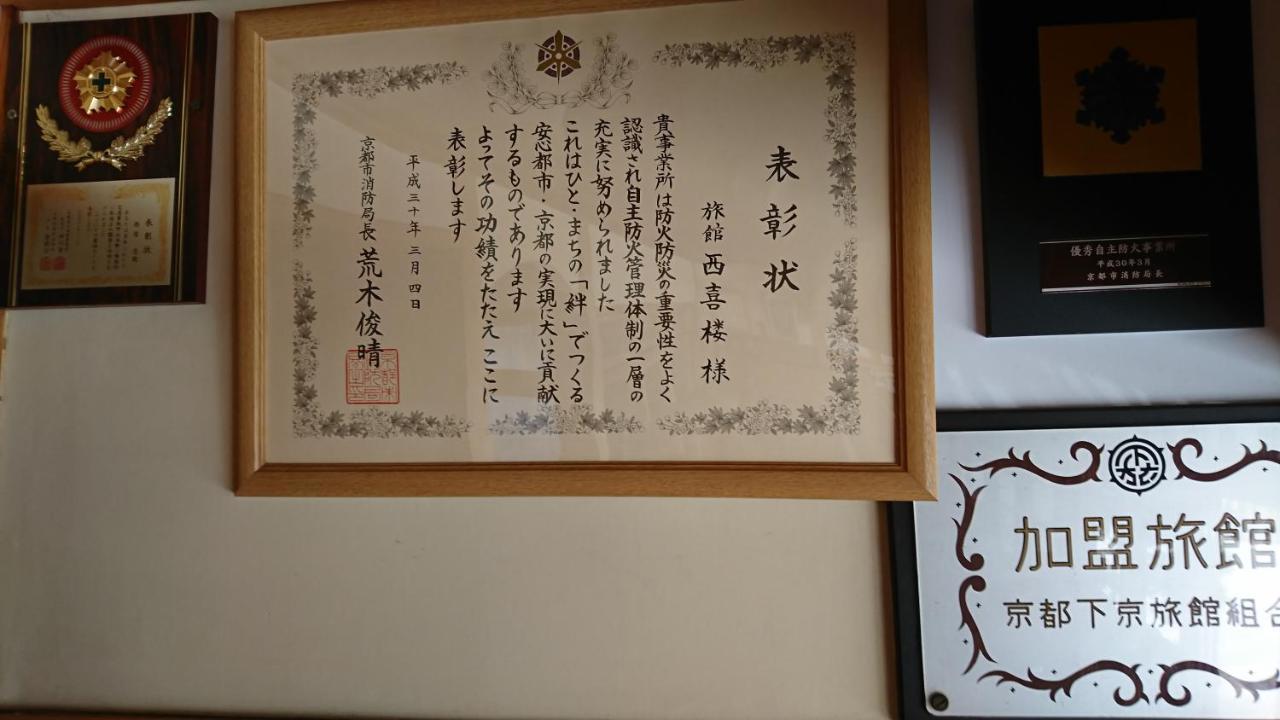 表彰状
旅館 西喜楼 様
貴事業所は防火防災の重要性をよく
認識され自主防火管理体制の一層の
充実に努められました
これはひと・まちの「絆」でつくる
安心都市・京都の実現に大いに貢献
するものであります
よってその功績をたたえ ここに
表彰します
平成三十年 三月四日
京都市消防局長 荒木俊晴
表彰状
優秀自主防火事業所
平成30年3月
京都市消防局長
加盟旅館
京都下京旅館組合